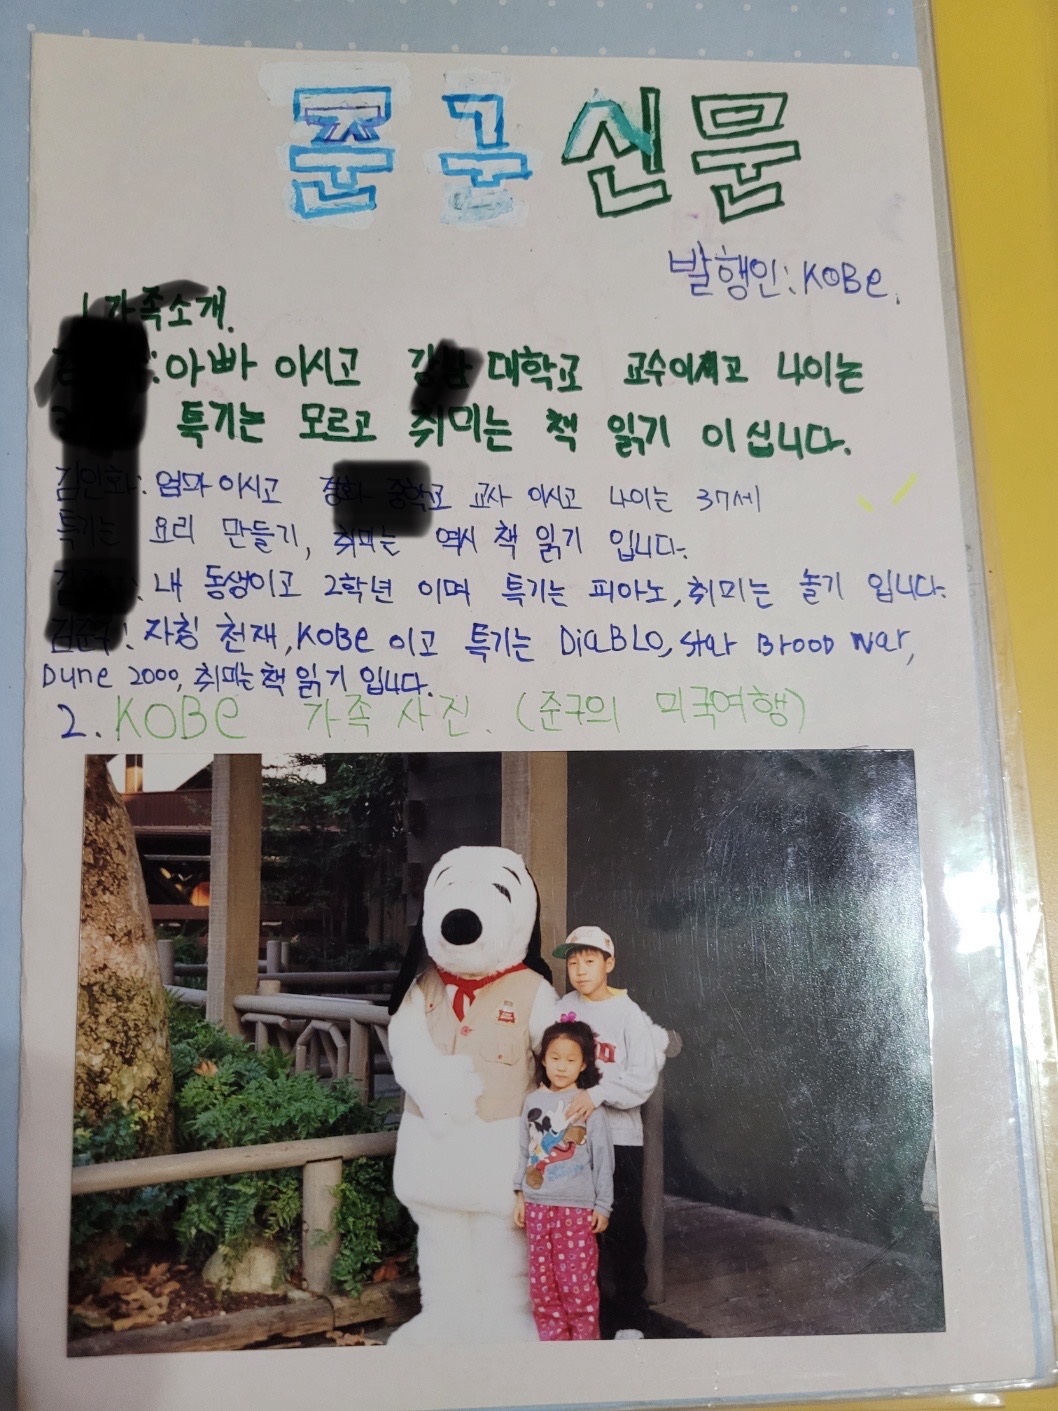 준구신문
발행인: KOBe.
1. 가족소개.
: 아빠 이시고 대학교 교수이시고 나이는
특기는 모르고 취미는 책 읽기 이십니다.
: 엄마 이시고 중학교 교사 이시고 나이는 37세
특기는 요리 만들기, 취미는 역시 책 읽기 입니다.
: 내 동생이고 2학년 이며 특기는 피아노, 취미는 놀기 입니다.
: 자칭 천재, KOBe 이고 특기는 DiaBLO, Star Brood War,
Dune 2000, 취미는 책 읽기 입니다.
2. KOBe 가족 사진. (준구의 미국여행)